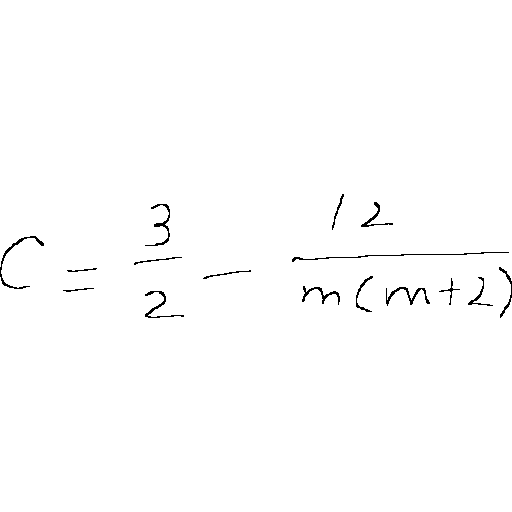 C = \frac{3}{2} - \frac{12}{m(m+2)}